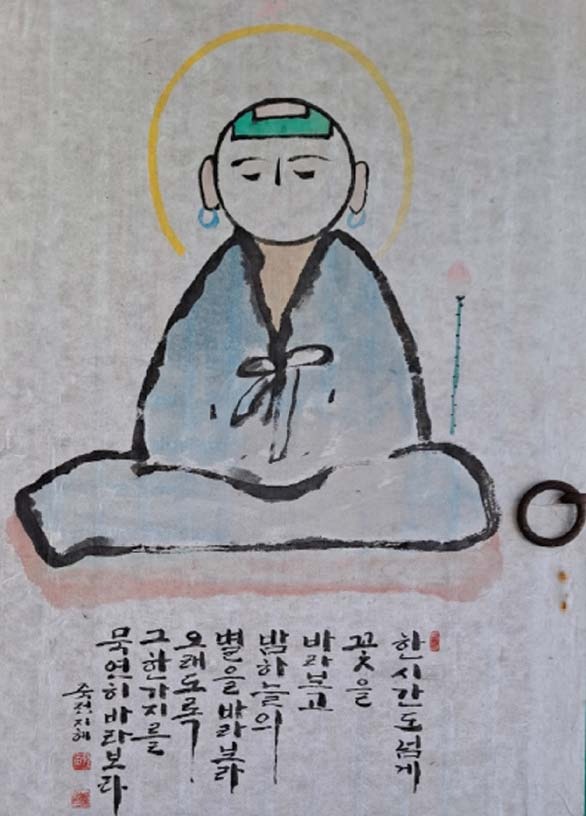 한시간도 넘게
꽃을
바라보고
밤하늘의
별을 바라보라
오래도록
그 한가지를
묵연히 바라보라
죽전지혜